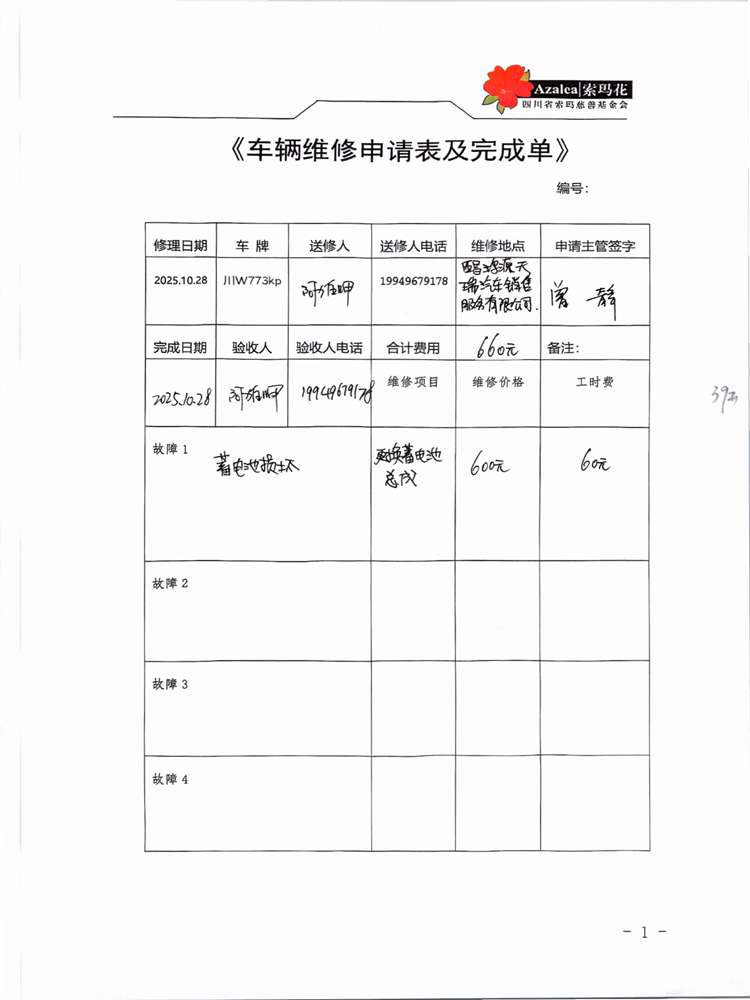 Azalea|索玛花
四川省索玛慈善基金会
《车辆维修申请表及完成单》
编号:
修理日期 车 牌 送修人 送修人电话 维修地点 申请主管签字
2025.10.28 川W773kp 19949679178
瑞汽车销售
服务有限公司.
完成日期 验收人 验收人电话 合计费用 660元 备注:
2025.10.28 19949679178 维修项目 维修价格 工时费
故障 1 蓄电池损坏 更换蓄电池 600元 60元
总成
故障 2
故障 3
故障 4
- 1 -